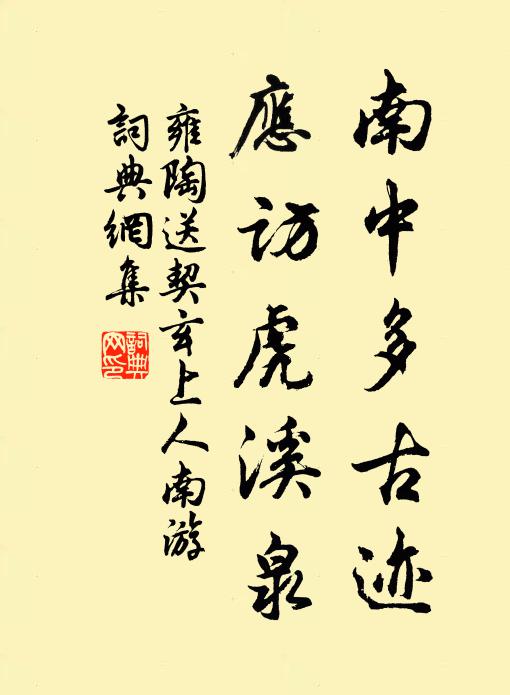 南中多古迹
應訪虎溪泉
雍陶送契玄上人南游
詞典網集
詞典網印